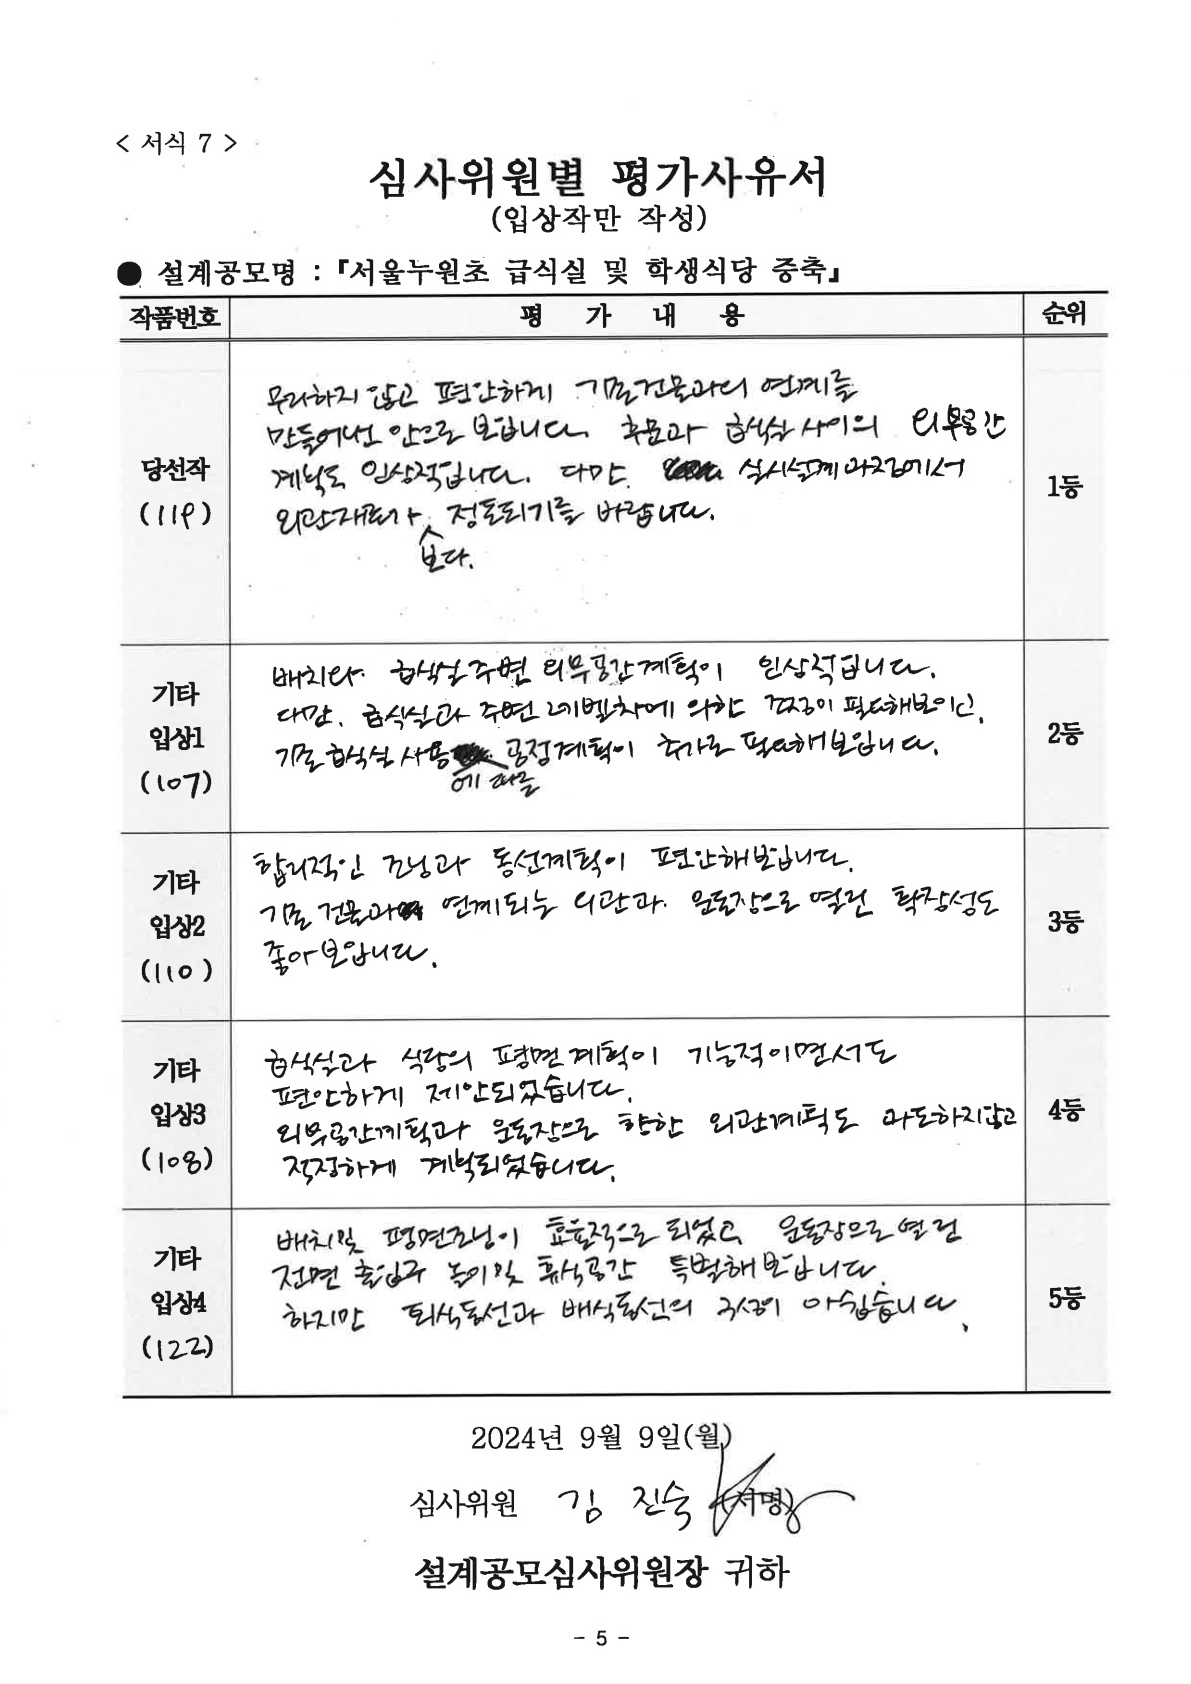 < 서식 7 >
심사위원별 평가사유서
(입상작만 작성)
● 설계공모명 : 『서울누원초 급식실 및 학생식당 증축』
작품번호 평 가 내 용 순위
당선작
(119)
무리하지 않고 편안하게 기존건물과의 연계를
만들어낸 안으로 보입니다. 후문과 급식실 사이의 외부공간
계획도 인상적입니다. 다만, 실시설계과정에서
외관재료가 보다. 정돈되기를 바랍니다.
1등
기타
입상1
(107)
배치와 급식실주변 외부공간계획이 인상적입니다.
다만, 급식실과 주변 레벨차에 의한 검토이 필요해보이고,
기존급식실 사용에 따른 공정계획이 추가로 필요해보입니다.
2등
기타
입상2
(110)
합리적인 조닝과 동선계획이 편안해보입니다.
기존 건물과 연계되는 외관과 운동장으로 열린 확장성도
좋아보입니다.
3등
기타
입상3
(108)
급식실과 식당의 평면계획이 기능적이면서도
편안하게 제안되었습니다.
외부공간계획과 운동장으로 향한 외관계획도 과도하지않고
적정하게 계획되었습니다.
4등
기타
입상4
(122)
배치및 평면조닝이 효율적으로 되었고, 운동장으로 열린
전면 출입구 놀이및 휴식공간 특별해보입니다.
하지만 퇴식동선과 배식동선의 구성이 아쉽습니다.
5등
2024년 9월 9일(월)
심사위원 김 진숙 (서명)
설계공모심사위원장 귀하
- 5 -